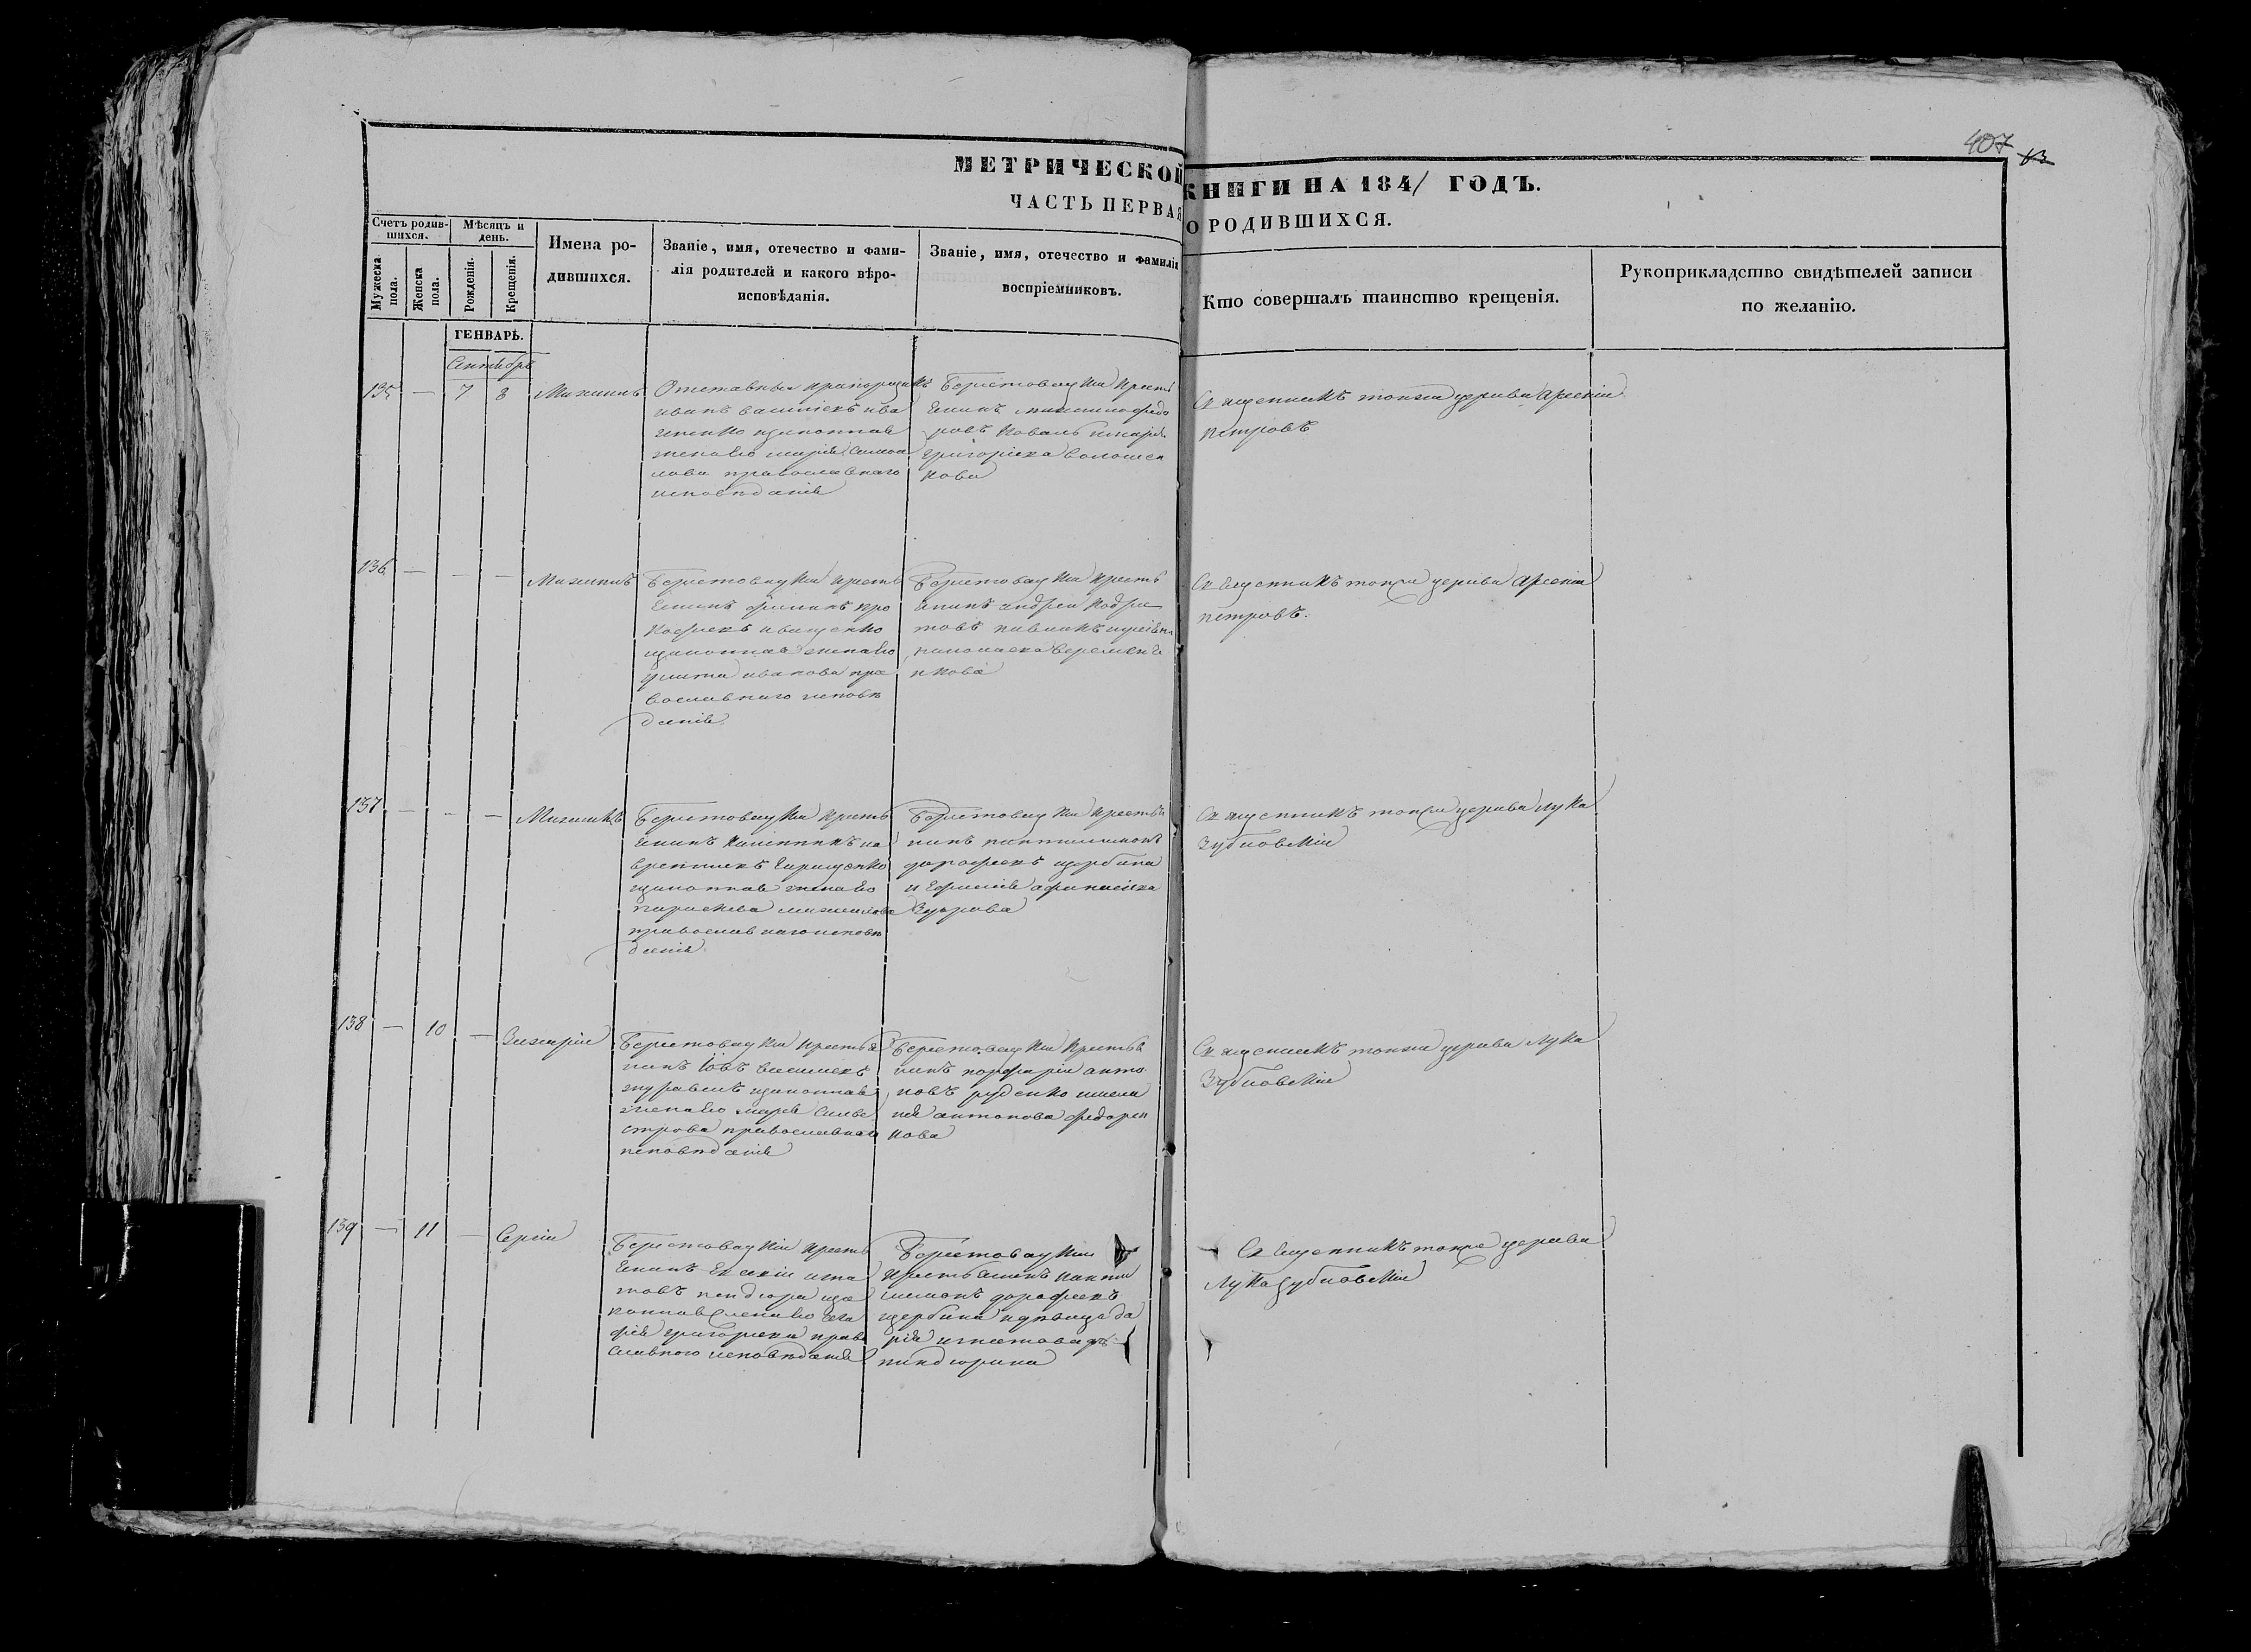 407
13
МЕТРИЧЕСКОЙ КНИГИ НА 1841 ГОДЪ.
ЧАСТЬ ПЕРВАЯ О РОДИВШИХСЯ.
Счетъ родив-
шихся.
Мужеска
пола.
Женска
пола.
Мѣсяцъ и
день.
Рожденія.
Крещенія.
Имена ро-
дившихся.
Званіе, имя, отечество и фами-
лія родителей и какого вѣро-
исповѣданія.
Званіе, имя, отечество и фамилія
воспріемниковъ.
Кто совершалъ таинство крещенія.
Рукоприкладство свидѣтелей записи
по желанію.
ГЕНВАРЬ.
Сентябрь
135 — 7 8
Михаилъ
Отставный прапорщикъ
иванъ василіевъ ива
щенко изаконная
жена его марія
православнаго
исповѣданія
Берестовецкій кресть
янинъ михаилъ федо
ровъ коваль
григоріева волошен
кова
Священникъ тояже церкви Арсеній
Петровъ
136 — — —
Михаилъ
Берестовецкій кресть
янинъ филипъ про
кофіевъ иващенко
изаконная жена его
иванова пра
вославнаго исповѣ
данія
Берестовецкій кресть
янинъ андрей кодра
товъ
кова
Священникъ тояже церкви Арсеній
петровъ.
137 — — —
Михаилъ
Берестовецкій кресть
янинъ
изаконная жена его
параскева михайлова
православнаго исповѣ
данія
Берестовецкій крестья
нинъ пантилимонъ
дорофеевъ щербина
и Ефимія афанасіева
Священникъ тояже церкви Лука
Зубковскій
138 — 10 —
Захарій
Берестовецкій крестья
нинъ Іовъ василіевъ
журавель изаконная
жена его марія сильве
строва православнаго
исповѣданія
Берестовецкій крестья
нинъ порфирій анто
новъ руденко
антонова федорен
кова
Священникъ тояже церкви Лука
Зубковскій
139 — 11 —
Сергій
Берестовецкій кресть
янинъ игна
товъ пендюра иза
конная жена его ага
фія григоріева право
славнаго исповѣданія
Берестовецкій
крестьянинъ панти
лимонъ дорофеевъ
щербина идѣвица да
рія игнатова
пиндюрина
Священникъ тояже церкви
Лука Зубковскій